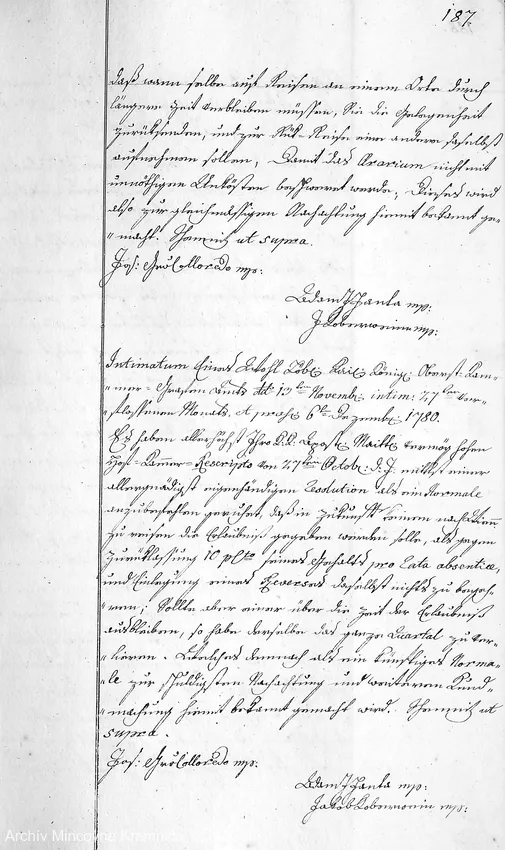 187.
daß wann selbe auf Reisen an einem Orte durch
längere Zeit verbleiben müssen, Sie die Gelegenheit
zurücksenden, und zur Rück-Reise eine andere daselbst
aufnehmen sollen, Damit das Ærarium nicht mit
unnöthigen Unkösten beschweret werde; Dieses wird
also zur gleichmässigen Nachachtung hiemit bekannt ge-
macht. Schemnitz ut supra.
Jos: Gr: v Colloredo mp:
Adam J: mp:
mp:
Intimatum Eines Wohl Löbl: Kais: Königl: Oberst-Kam-
mer-Grafen Amts dd 13ten Novembr: intim: 27ten ver-
flossenen Monats, et præs: 6ten Dezembr: 1780.
Es haben allerhöchst Ihro K.K. Apost: Maitt: vermög hohen
Hof-Kammer-Rescripto von 27ten Octobr: d: J: mittelst einer
allergnädigst eigenhändigen Resolution als ein Normale
anzubefehlen geruhet, daß in Zukunft keinem
zu reisen die Erlaubniß gegeben werden solle, als gegen
Zurücklassung 10 pCto seines Gehalts pro rata absentiæ,
und Einlegung eines Reverses daselbst nichts zu begeh-
ren; Sollte aber einer über die Zeit der Erlaubniß
ausbleiben, so habe derselbe das ganze Quartal zu ver-
lieren. Welches demnach als ein künftiges Norma-
le zur schuldigsten Nachachtung und weiteren Kund-
machung hiemit bekannt gemacht wird. Schemnitz ut
supra.
Jos: Gr: v Colloredo mp:
Adam J: mp:
Jakob mp:
Archiv Mincovne Kremnica